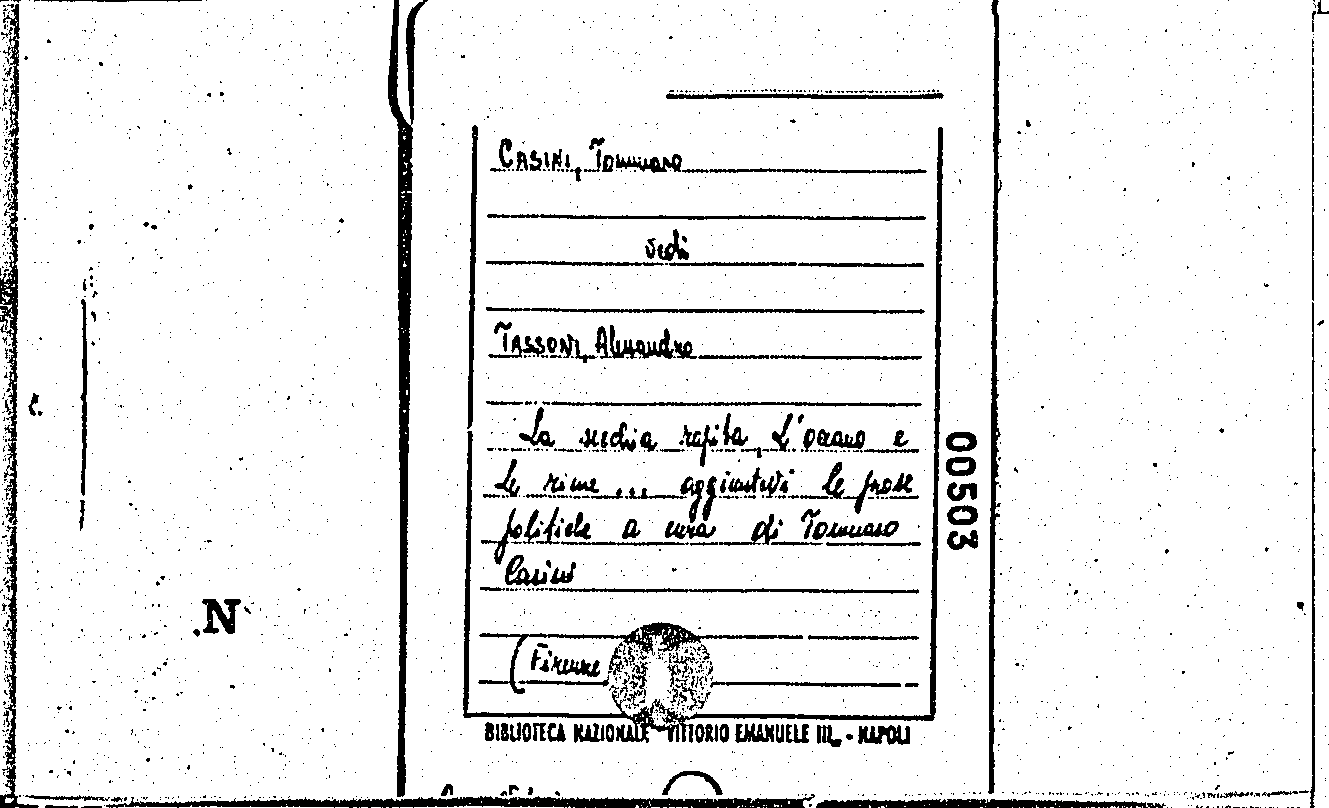 CASINI, Tommaso
vedi
TASSONI, Alessandro
La secchia rapita, L'oceano e
le rime ... aggiuntevi le prose
politiche a cura di Tommaso
Casini
(Firenze
BIBLIOTECA NAZIONALE VITTORIO EMANUELE III - NAPOLI
00503
N